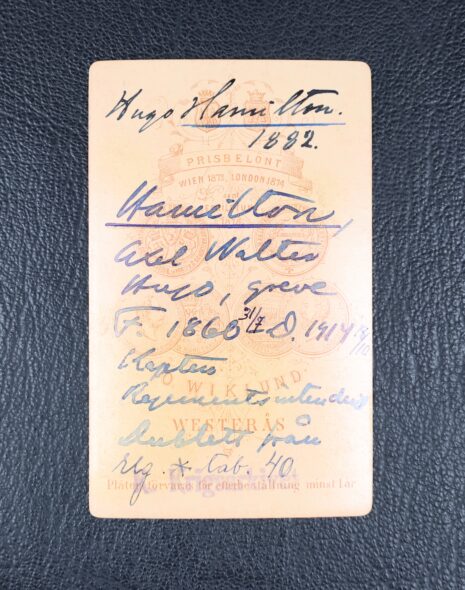 Hugo Hamilton.
1882.
PRISBELÖNT
WIEN 1873, LONDON 1874
Hamilton,
Axel Walter
Hugo, greve
F. 1860 31/7 D. 1914
Kapten
O WIKLUND
Regementsintendent
WESTERÅS
Dublett från
Elg. * tab. 40
Krigsarkivet
Platen förvaras för efterbeställning minst 1 år